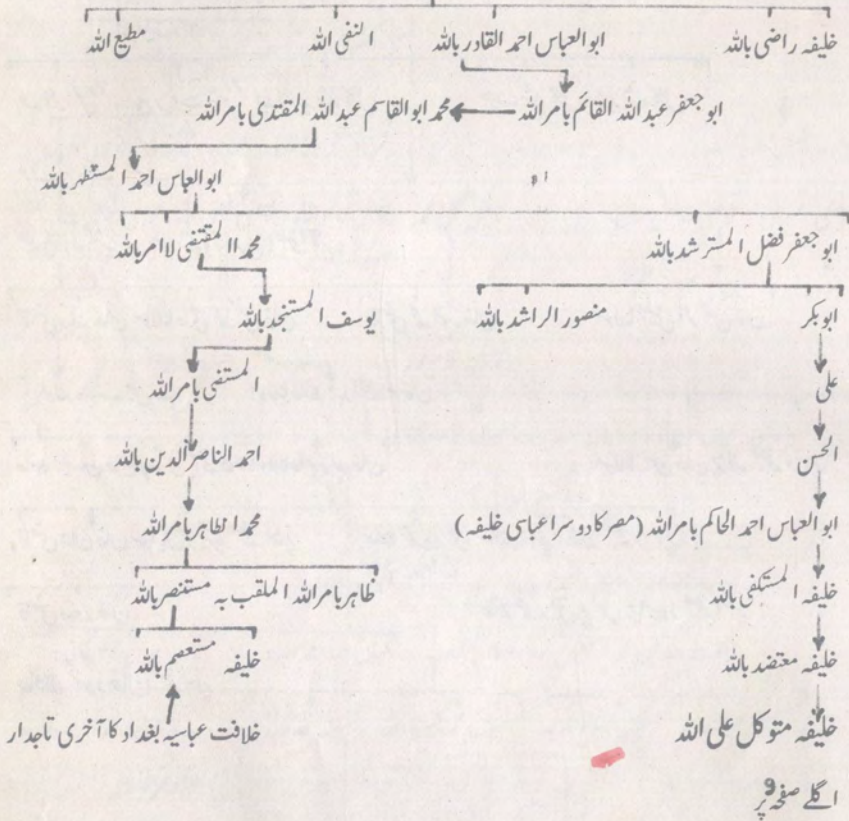 خلیفہ راضی باللہ ابوالعباس احمد القادر باللہ النفی اللہ مطیع اللہ
ابو جعفر عبداللہ القائم بامراللہ محمد ابوالقاسم عبداللہ المقتدی بامراللہ
ابوالعباس احمد المستظہر باللہ
ابو جعفر فضل المسترشد باللہ محمد المقتضی لاامرباللہ
ابوبکر منصور الراشد باللہ یوسف المستنجد باللہ
علی المستضی بامراللہ
الحسن احمد الناصر الدین باللہ
ابوالعباس احمد الحاکم بامراللہ (مصر کا دوسرا عباسی خلیفہ) محمد الظاہر بامراللہ
خلیفہ المستکفی باللہ ظاہر بامراللہ الملقب بہ مستنصر باللہ
خلیفہ معتضد باللہ خلیفہ مستعصم باللہ
خلیفہ متوکل علی اللہ خلافت عباسیہ بغداد کا آخری تاجدار
اگلے صفحہ 9 پر